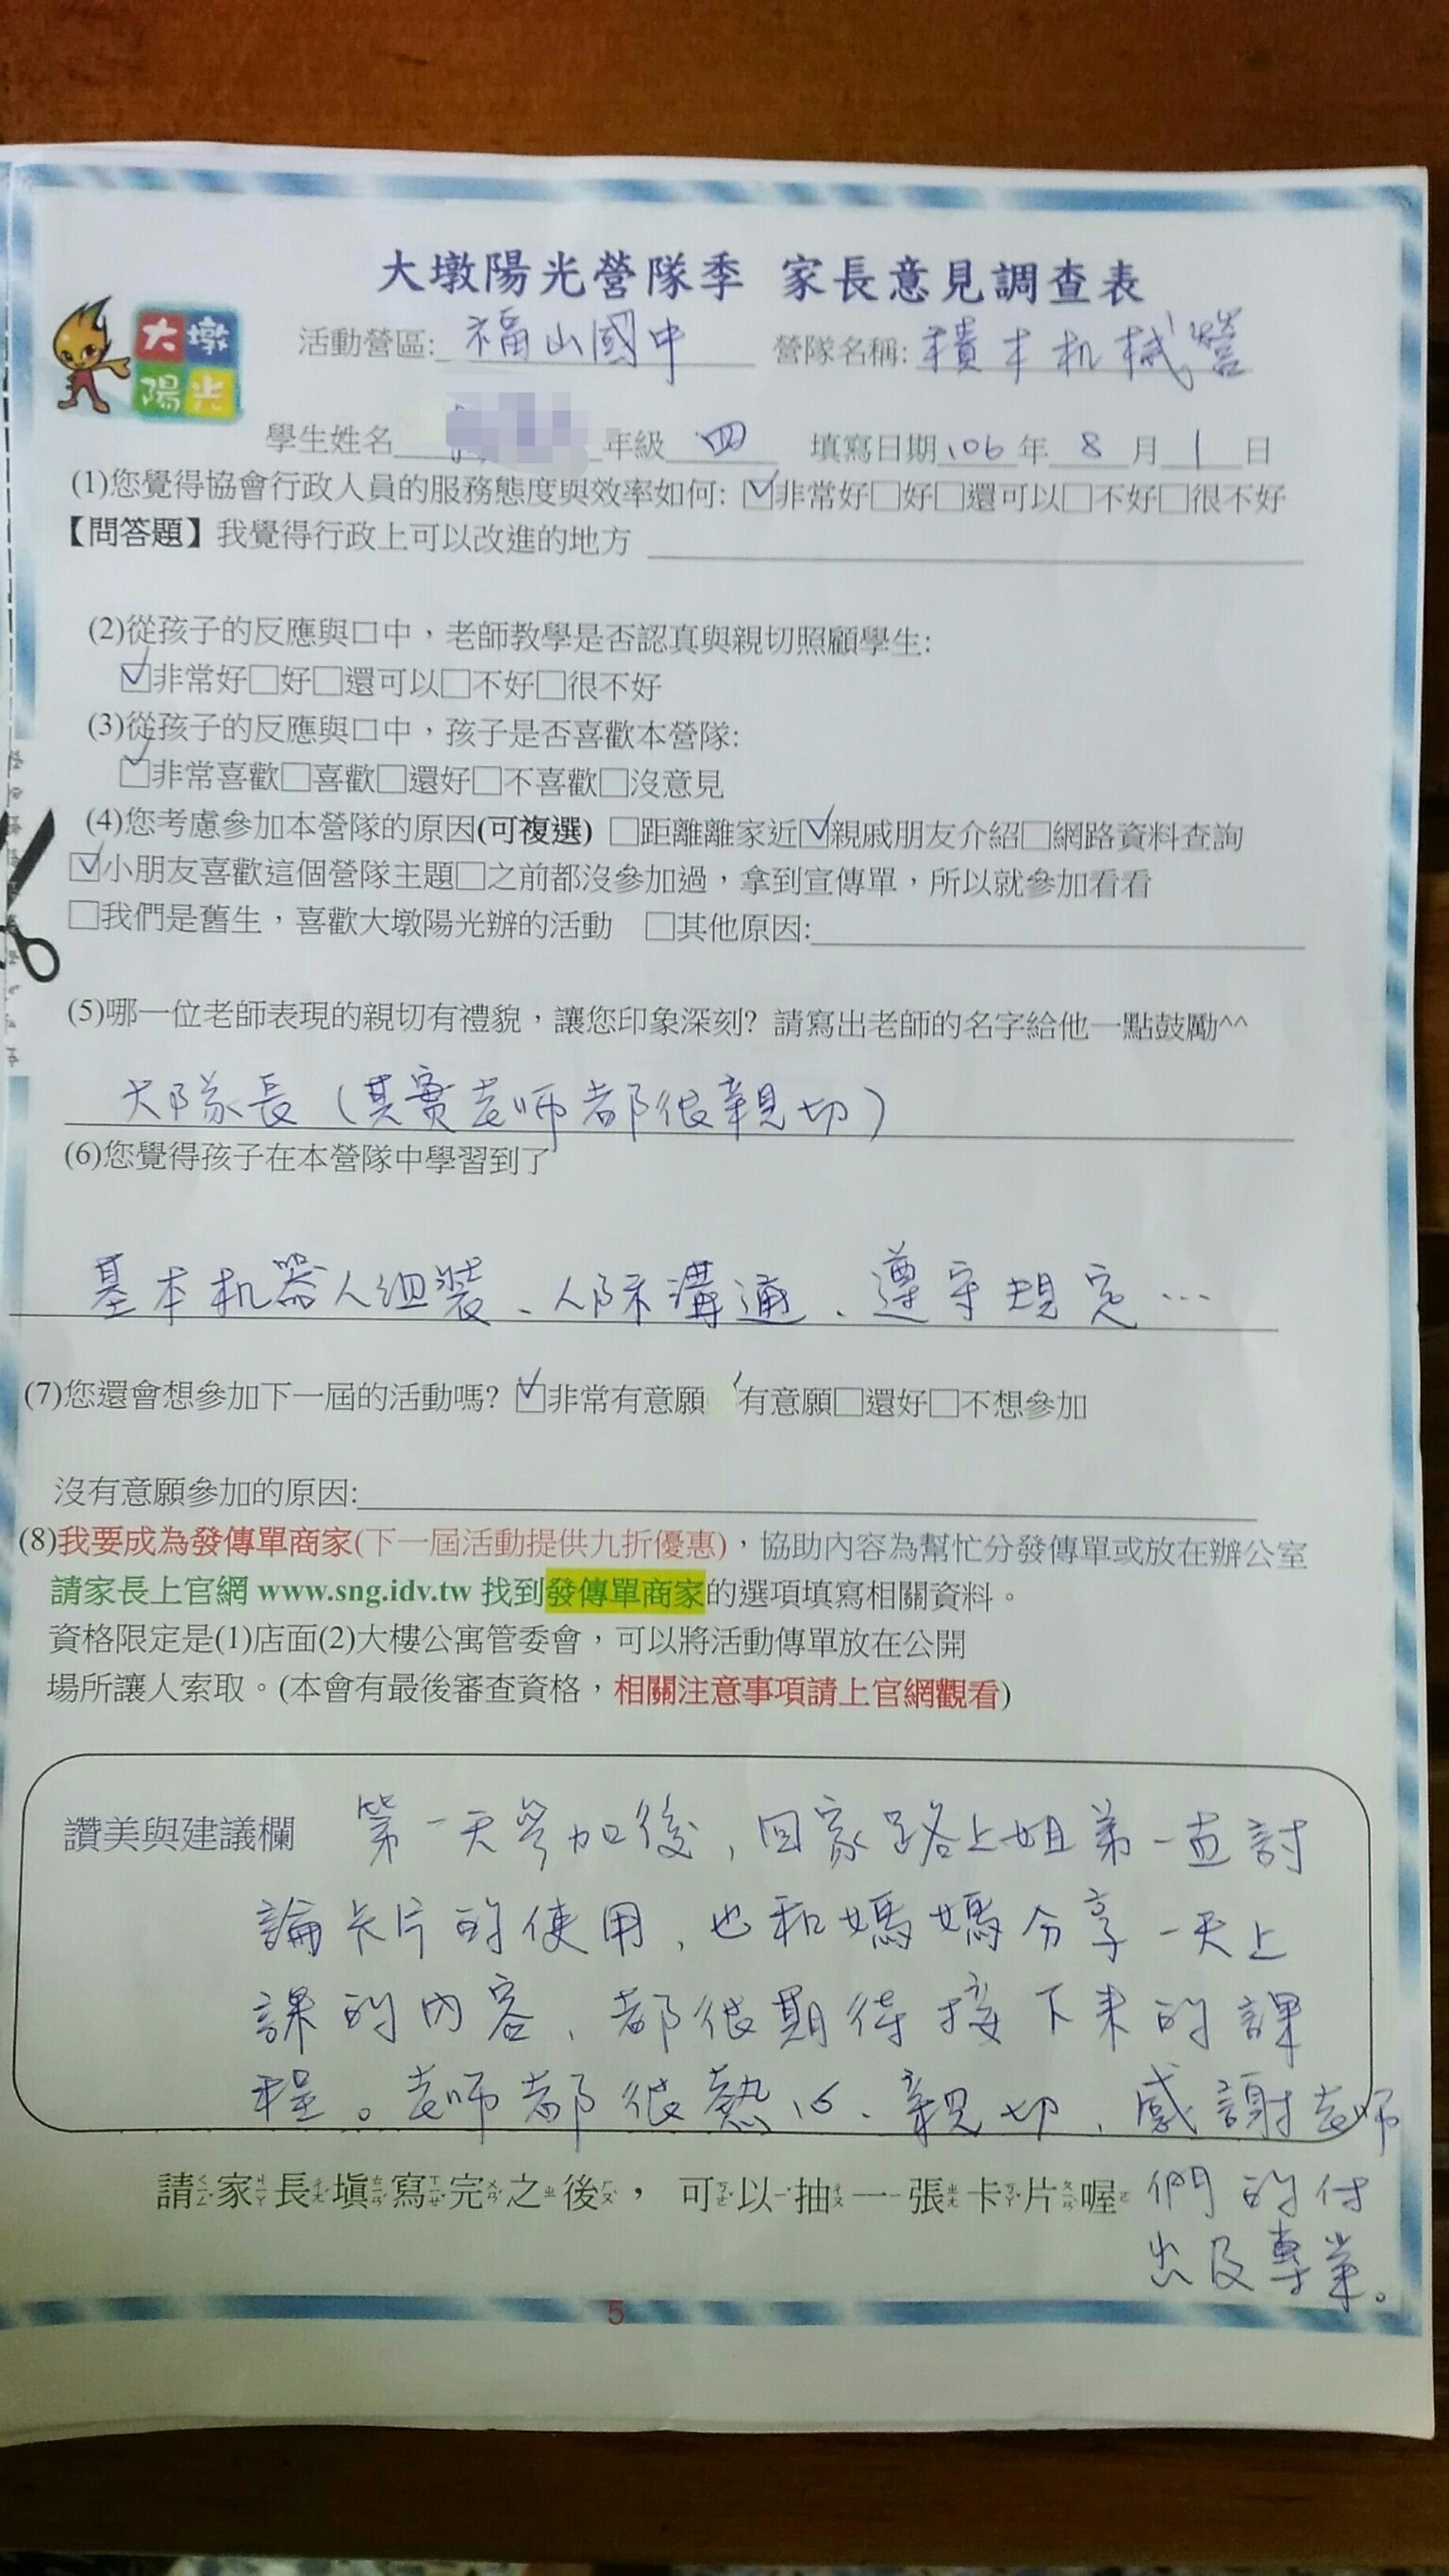 大墩陽光營隊季 家長意見調查表
大墩
陽光
活動營區: 福山國中 營隊名稱: 積木机械營
學生姓名 年級 四 填寫日期 106 年 8 月 1 日
(1)您覺得協會行政人員的服務態度與效率如何: ☑非常好□好□還可以□不好□很不好
【問答題】我覺得行政上可以改進的地方
(2)從孩子的反應與口中，老師教學是否認真與親切照顧學生:
☑非常好□好□還可以□不好□很不好
(3)從孩子的反應與口中，孩子是否喜歡本營隊:
☑非常喜歡□喜歡□還好□不喜歡□沒意見
(4)您考慮參加本營隊的原因(可複選) □距離離家近☑親戚朋友介紹□網路資料查詢
☑小朋友喜歡這個營隊主題□之前都沒參加過，拿到宣傳單，所以就參加看看
□我們是舊生，喜歡大墩陽光辦的活動 □其他原因:
(5)哪一位老師表現的親切有禮貌，讓您印象深刻? 請寫出老師的名字給他一點鼓勵^^
大隊長（其實老师都很親切）
(6)您覺得孩子在本營隊中學習到了
基本机器人组裝、人际溝通、遵守規定…
(7)您還會想參加下一屆的活動嗎? ☑非常有意願 有意願□還好□不想參加
沒有意願參加的原因:
(8)我要成為發傳單商家(下一屆活動提供九折優惠)，協助內容為幫忙分發傳單或放在辦公室
請家長上官網 www.sng.idv.tw 找到發傳單商家的選項填寫相關資料。
資格限定是(1)店面(2)大樓公寓管委會，可以將活動傳單放在公開
場所讓人索取。(本會有最後審查資格，相關注意事項請上官網觀看)
讚美與建議欄 第一天參加後，回家路上姐弟一直討
論卡片的使用，也和媽媽分享一天上
課的內容，都很期待接下來的課
程。老师都很熱心、親切，感謝老师
們的付
出及專業。
請家長填寫完之後，可以抽一張卡片喔
5